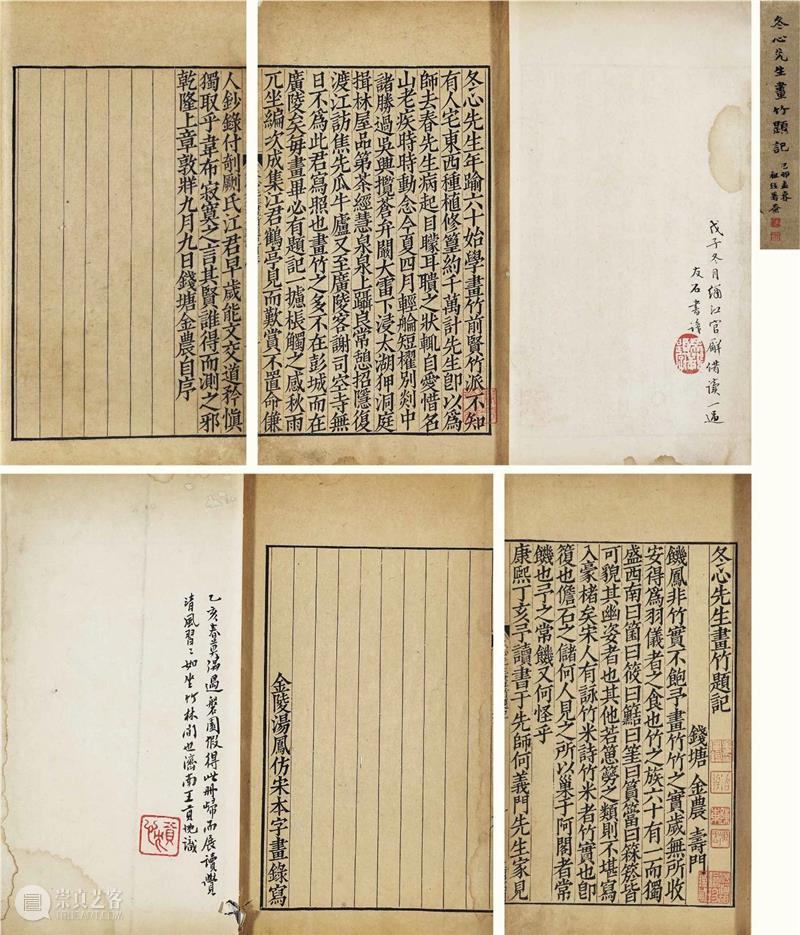 冬心先生畫竹題記
己卯孟春
冬心先生年踰六十始學畫竹前賢竹派不知
有人宅東西種植修篁約千萬計先生卽以爲
師去春先生病起目矇耳聵之狀輒自愛惜名
山老疾時時動念今夏四月輕艙短櫂別剡中
諸勝過吳興攬蒼弁闞大雷下浸太湖狎洞庭
揖林屋品第茶經慧泉泉上躡良常憩招隱復
渡江訪焦先瓜牛廬又至廣陵客謝司空寺無
日不為此君寫照也畫竹之多不在彭城而在
廣陵矣毋畫畢必有題記一攄棖觸之感秋雨
兀坐編次成集江君鶴亭見而歎賞不置命傔
人鈔錄付剞劂氏江君早歲能文交道矜慎
獨取乎韋布寂寞之言其賢誰得而測之邪
乾隆上章敦牂九月九日錢塘金農自序
戊子冬月緬江官廨借讀一過
友石書
冬心先生畫竹題記
錢塘 金農 壽門
饑鳳非竹實不飽予畫竹竹之實歲無所收
安得爲羽儀者之食也竹之族六十有一而獨
盛西南曰箘曰筊曰䈽曰筀曰篔簹曰箖箊皆
可貌其幽姿者也其他若䓗䉤之類則不堪寫
入豪楮矣宋人有詠竹米詩竹米者竹實也卽
䈚也儋石之儲何人見之所以巢于阿閣者常
饑也予之常饑又何怪乎
康熙丁亥予讀書于先師何義門先生家見
金陵湯鳳仿宋本字畫錄寫
乙亥春莫滿過磐園假得此冊歸而展讀覺
清風習習如坐竹林間也濟南王貢地識
崇真艺客